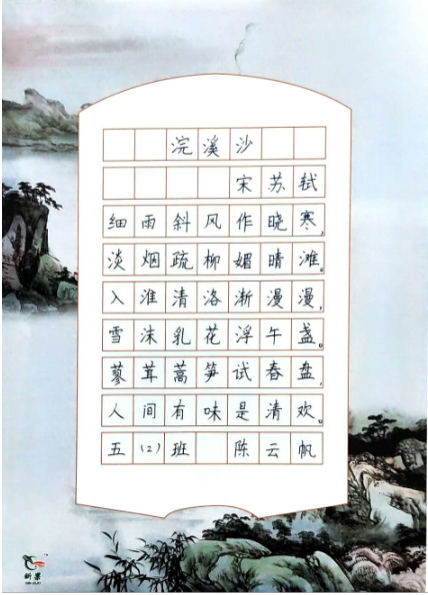 浣溪沙
宋苏轼
细雨斜风作晓寒，
淡烟疏柳媚晴滩。
入淮清洛渐漫漫，
雪沫乳花浮午盏。
蓼茸蒿笋试春盘，
人间有味是清欢。
五（2）班 陈云帆
昕果